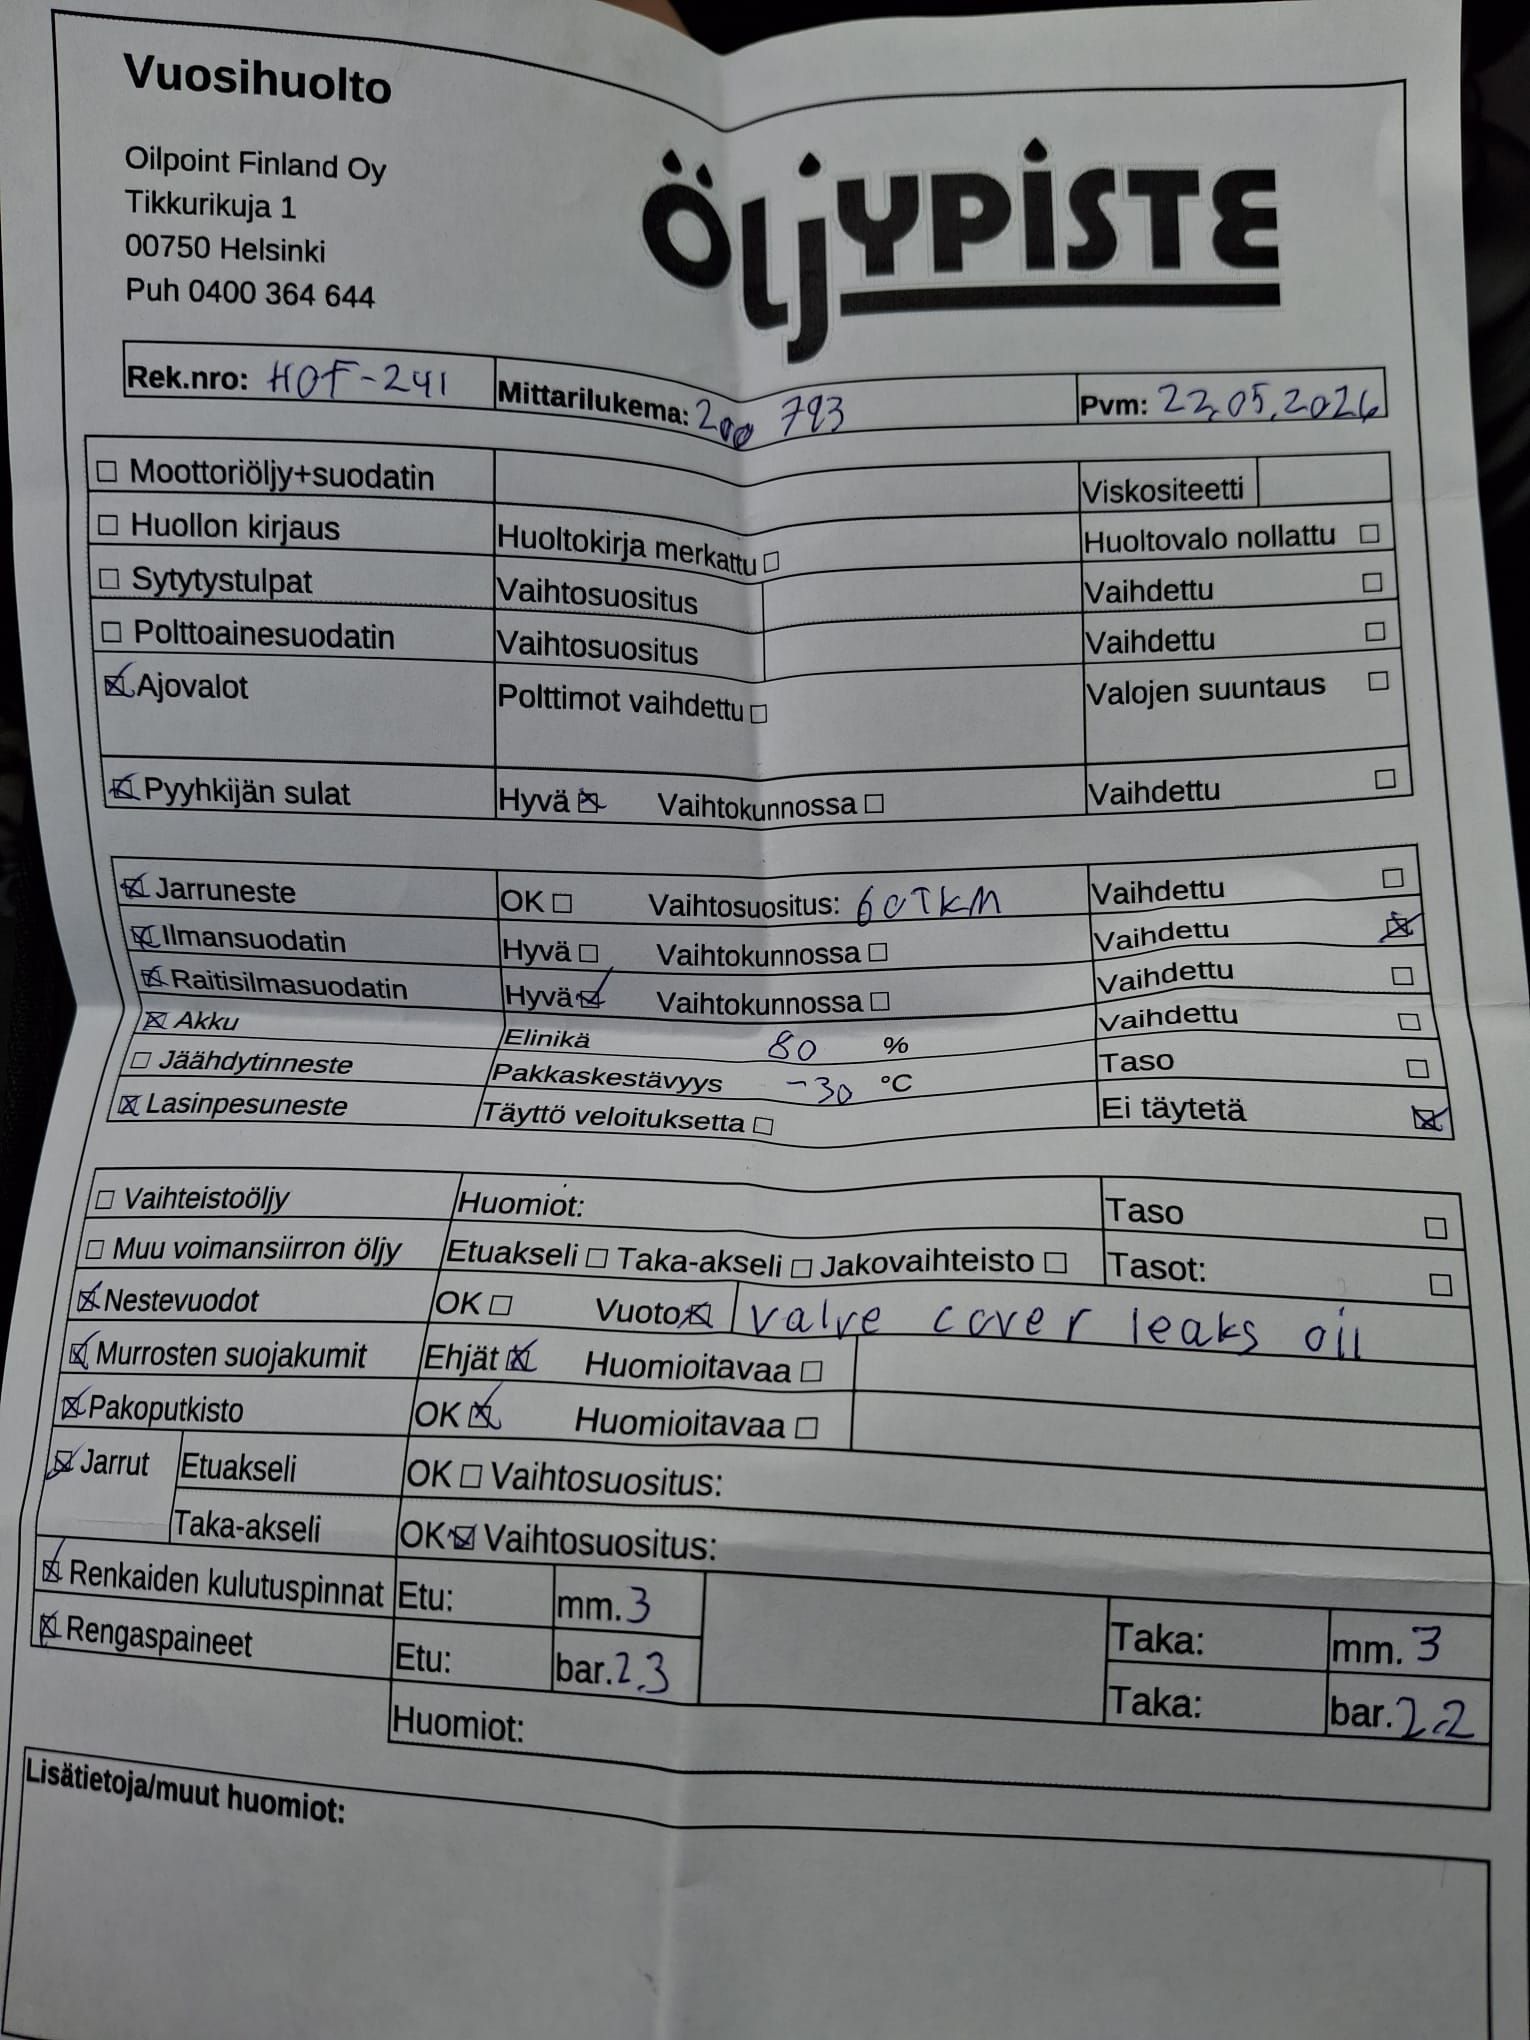 Vuosihuolto
Oilpoint Finland Oy
Tikkurikuja 1
00750 Helsinki
Puh 0400 364 644
ÖljYPiSTE
Rek.nro: HOF-241 Mittarilukema: 200 793 Pvm: 22.05.2026
☐ Moottoriöljy+suodatin Viskositeetti
☐ Huollon kirjaus Huoltokirja merkattu ☐ Huoltovalo nollattu ☐
☐ Sytytystulpat Vaihtosuositus Vaihdettu ☐
☐ Polttoainesuodatin Vaihtosuositus Vaihdettu ☐
☒ Ajovalot Polttimot vaihdettu ☐ Valojen suuntaus ☐
☒ Pyyhkijän sulat Hyvä ☒ Vaihtokunnossa ☐ Vaihdettu ☐
☒ Jarruneste OK ☐ Vaihtosuositus: 60TKM Vaihdettu ☐
☒ Ilmansuodatin Hyvä ☐ Vaihtokunnossa ☐ Vaihdettu ☒
☒ Raitisilmasuodatin Hyvä ☒ Vaihtokunnossa ☐ Vaihdettu ☐
☒ Akku Elinikä 80 % Vaihdettu ☐
☐ Jäähdytinneste Pakkaskestävyys -30 °C Taso ☐
☒ Lasinpesuneste Täyttö veloituksetta ☐ Ei täytetä ☒
☐ Vaihteistoöljy Huomiot: Taso ☐
☐ Muu voimansiirron öljy Etuakseli ☐ Taka-akseli ☐ Jakovaihteisto ☐ Tasot: ☐
☒ Nestevuodot OK ☐ Vuoto ☒ valve cover leaks oil
☒ Murrosten suojakumit Ehjät ☒ Huomioitavaa ☐
☒ Pakoputkisto OK ☒ Huomioitavaa ☐
☒ Jarrut Etuakseli OK ☐ Vaihtosuositus:
Taka-akseli OK ☒ Vaihtosuositus:
☒ Renkaiden kulutuspinnat Etu: mm. 3 Taka: mm. 3
☒ Rengaspaineet Etu: bar. 2.3 Taka: bar. 2.2
Huomiot:
Lisätietoja/muut huomiot: